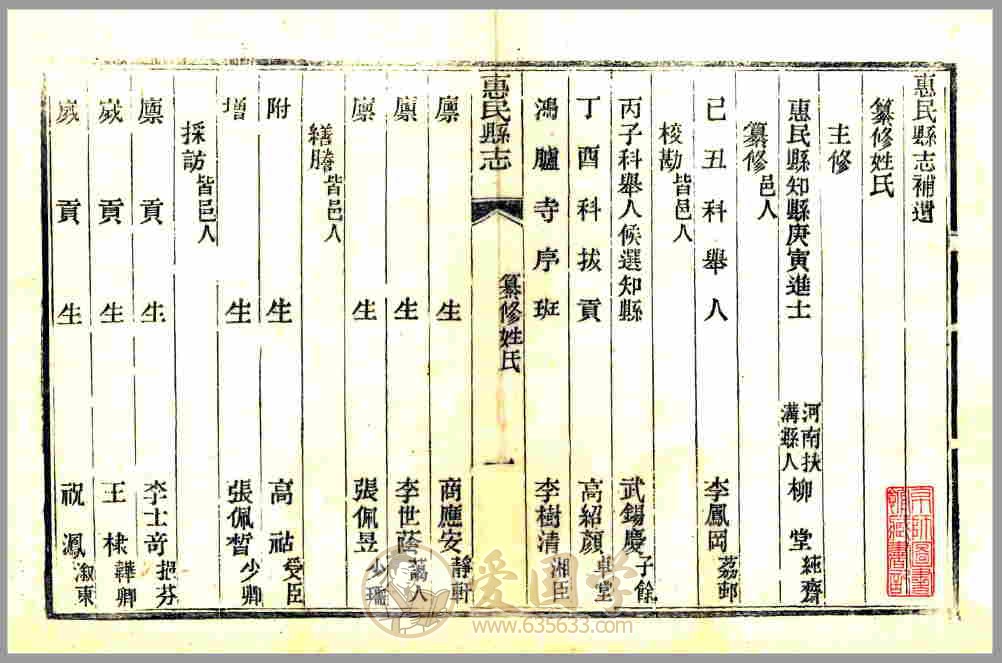 惠民縣志補遺
纂修姓氏
主修
惠民縣知縣庚寅進士 河南扶溝縣人 柳堂 純齋
纂修 邑人
己丑科舉人 李鳳岡 荔邨
校勘 皆邑人
丙子科舉人候選知縣 武錫慶 子餘
丁酉科拔貢 高紹顏 卓堂
鴻臚寺序班 李樹清 湘臣
惠民縣志 纂修姓氏 一
廩貢生 商應安 靜軒
廩貢生 李世蔭 藹人
廩生 張佩昱 少珊
繕謄 皆邑人
附貢生 高祜 受臣
增生 張佩晳 少鼎
採訪 皆邑人
廩貢生 李士奇 挹芬
歲貢生 王棣 韡卿
歲貢生 祝鳳 溆東
京師圖書館藏書記
爱国学
www.635633.com